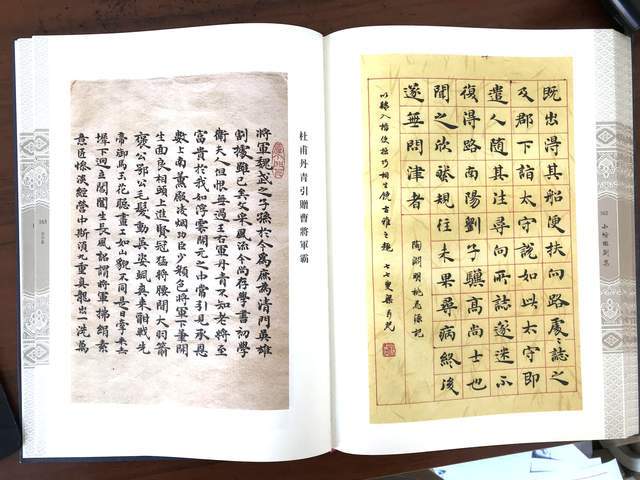 既出得其船便扶向路處處誌之
及郡下詣太守說如此太守即
遣人隨其往尋向所誌遂迷不
復得路南陽劉子驥高尚士也
聞之欣然規往未果尋病終後
遂無問津者
陶淵明桃花源記
以隸入楷使拙巧相生饒古雅之趣 七七叟
杜甫丹青引贈曹將軍霸
將軍魏武之子孫於今為庶為清門英雄
割據雖已矣文采風流今尚存學書初學
衛夫人但恨無過王右軍丹青不知老將至
富貴於我如浮雲開元之中常引見承恩
數上南薰殿凌烟功臣少顏色將軍下筆開
生面良相頭上進賢冠猛將腰間大羽箭
褒公鄂公毛髮動英姿颯爽來酣戰先
帝御馬玉花驄畫工如山貌不同是日牽來赤
墀下迥立閶闔生長風詔謂將軍拂絹素
意匠慘淡經營中斯須九重真龍出一洗萬
163